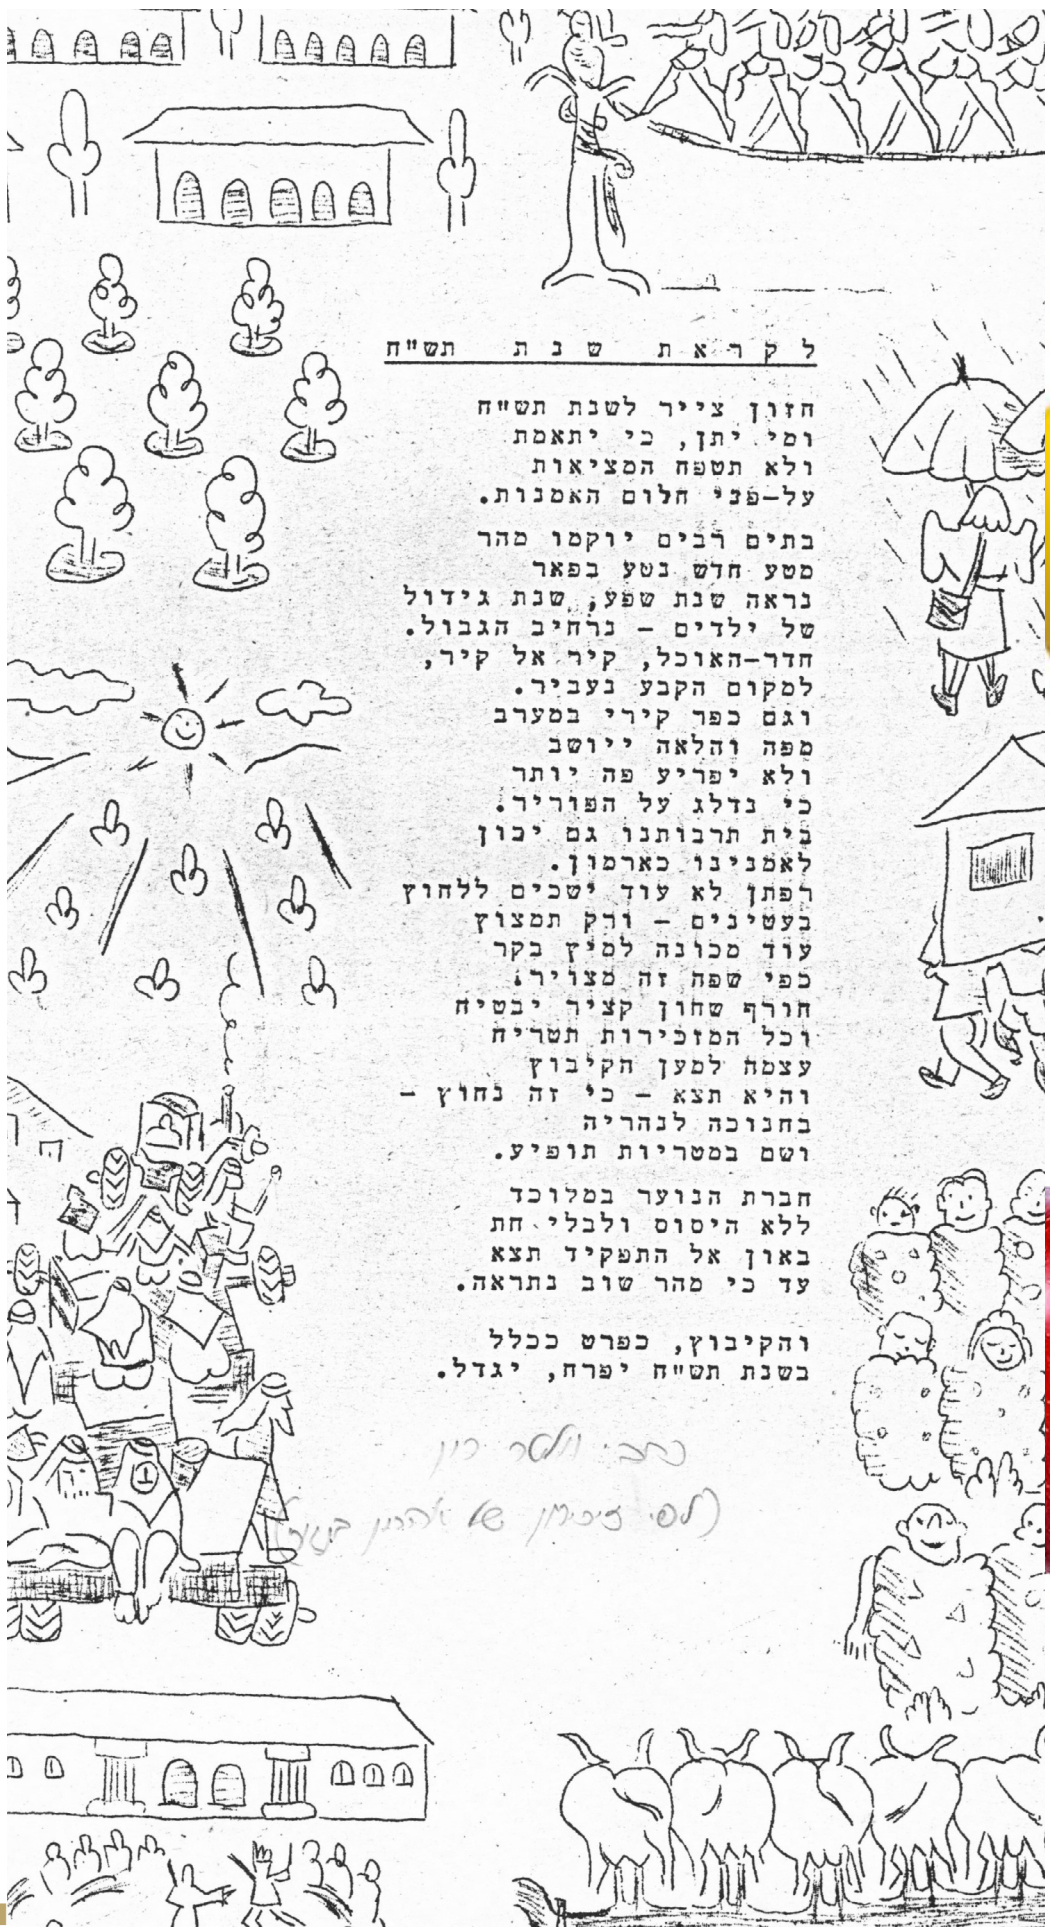 לקראת שנת תש"ח
חזון צייר לשנת תש"ח
ומי יתן, כי יתאמת
ולא תטפח המציאות
על-פני חלום האמנות.
בתים רבים יוקמו מהר
מטע חדש נטע בפאר
נראה שנת שפע, שנת גידול
של ילדים - נרחיב הגבול.
חדר-האוכל, קיר אל קיר,
למקום הקבע נעביר.
וגם כפר קירי במערב
מפה והלאה ייושב
ולא יפריע פה יותר
כי נדלג על הפוריר.
בית תרבותנו גם יכון
לאמנינו כארמון.
רפתן לא עוד ישכים ללחוץ
בעטינים - ורק תמצוץ
עוד מכונה למיץ בקר
כפי שפה זה מצויר.
חורף שחון קציר יבטיח
וכל המזכירות תטריח
עצמה למען הקיבוץ
והיא תצא - כי זה נחוץ -
בחנוכה לנהריה
ושם במטריות תופיע.
חברת הנוער במלוכד
ללא היסוס ולבלי חת
באון אל התפקיד תצא
עד כי מהר שוב נתראה.
והקיבוץ, כפרט ככלל
בשנת תש"ח יפרח, יגדל.
כתב: וולטר רון
(לפי זיכרון של אהרון